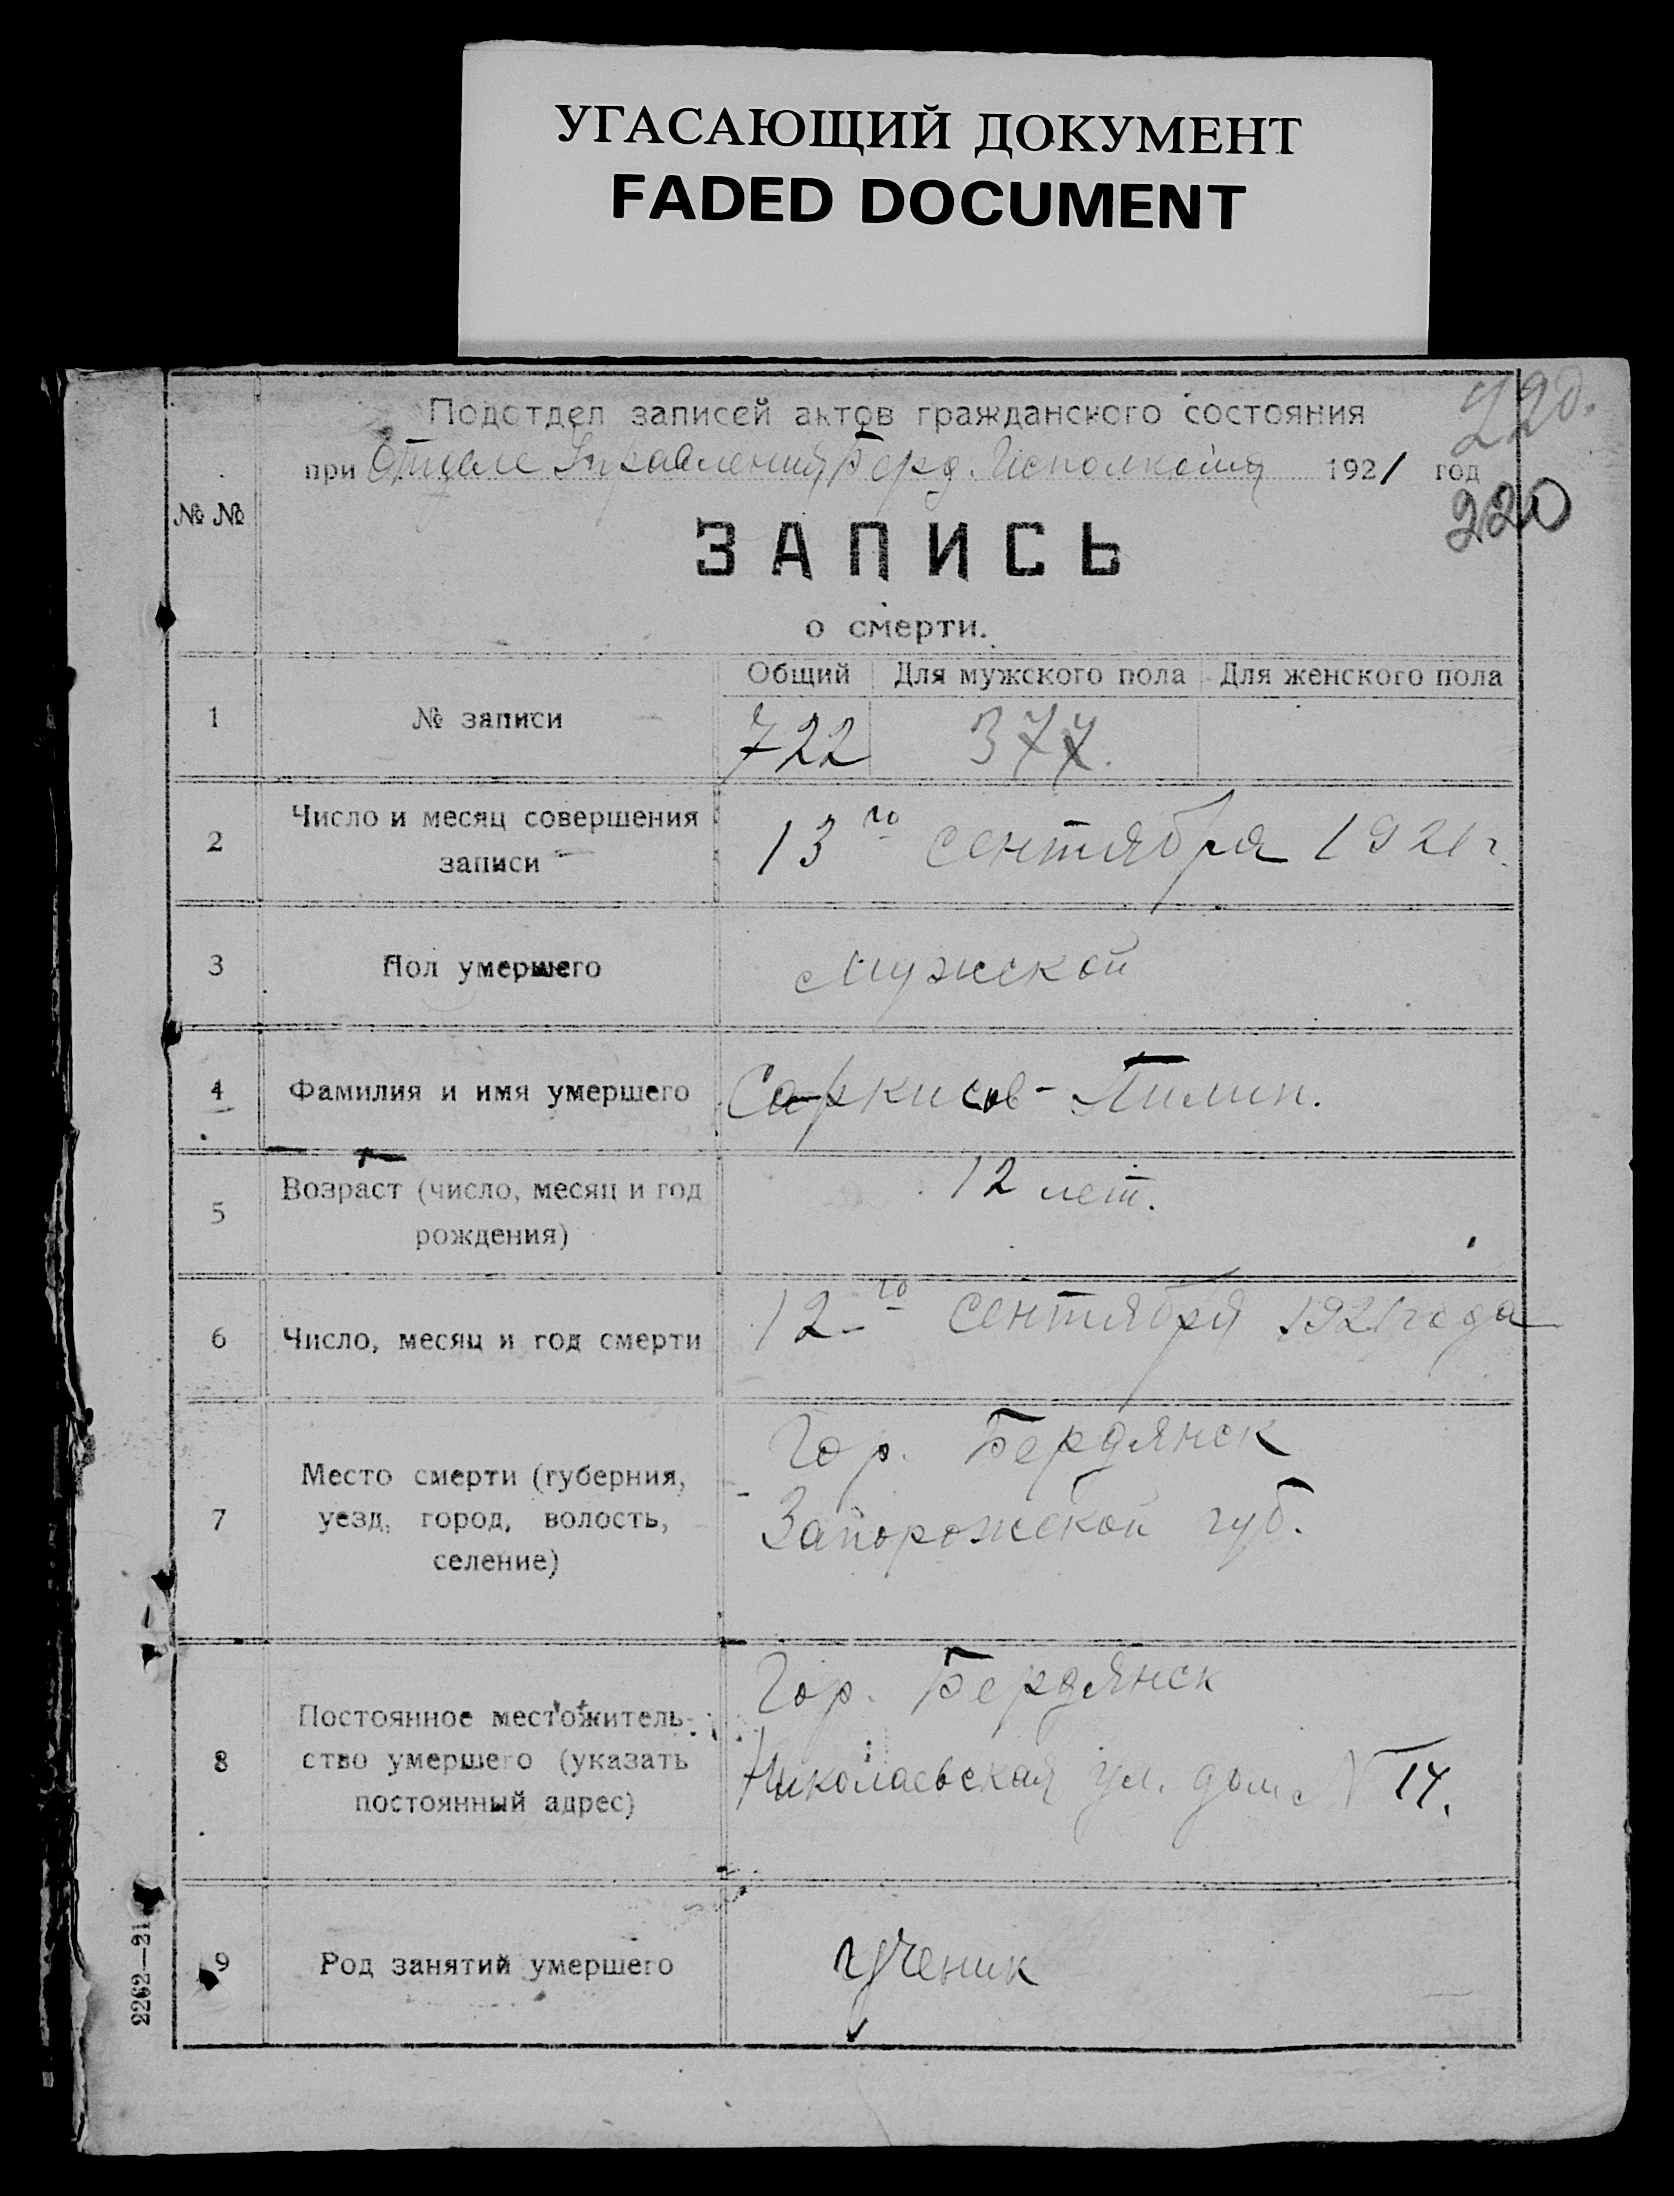 УГАСАЮЩИЙ ДОКУМЕНТ
FADED DOCUMENT
220.
Подотдел записей актов гражданского состояния
при Отделе Управления Берд. Исполкома 1921 год
220
№ №
ЗАПИСЬ
о смерти.
Общий Для мужского пола Для женского пола
1 № записи 722 377.
2 Число и месяц совершения
записи 13го сентября 1921 г.
3 Пол умершего Мужской
4 Фамилия и имя умершего Саркисов-
5 Возраст (число, месяц и год
рождения) 12 лет.
6 Число, месяц и год смерти 12-го сентября 1921 года
7 Место смерти (губерния,
уезд, город, волость,
селение)
Гор. Бердянск
Запорожской губ.
8 Постоянное местожитель-
ство умершего (указать
постоянный адрес)
Гор. Бердянск
Николаевская ул. дом №
9 Род занятий умершего ученик
2262—21